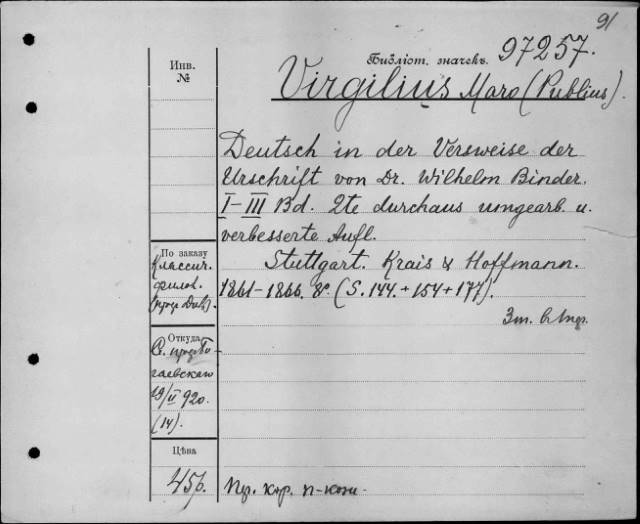 91
Инв.
№
Библіот. значекъ. 97257.
Virgilius Maro (Publius).
Deutsch in der Versweise der
Urschrift von Dr. Wilhelm Binder.
I–III Bd. 2te durchaus umgearb. u.
verbesserte Aufl.
Stuttgart. Krais & Hoffmann.
1861–1866. 8º. (S. 144. + 154 + 177).
По заказу
Классич.
филол.
3 т. в 1 пер.
Откуда
19/II 920.
(14).
Цѣна
45 р.
Пр. кор. п-кож.